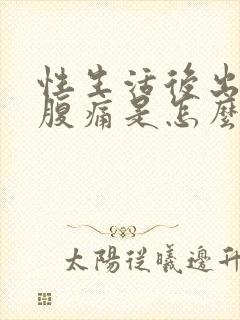 性生活後出
腹痛是怎麼
太陽從曦邊升